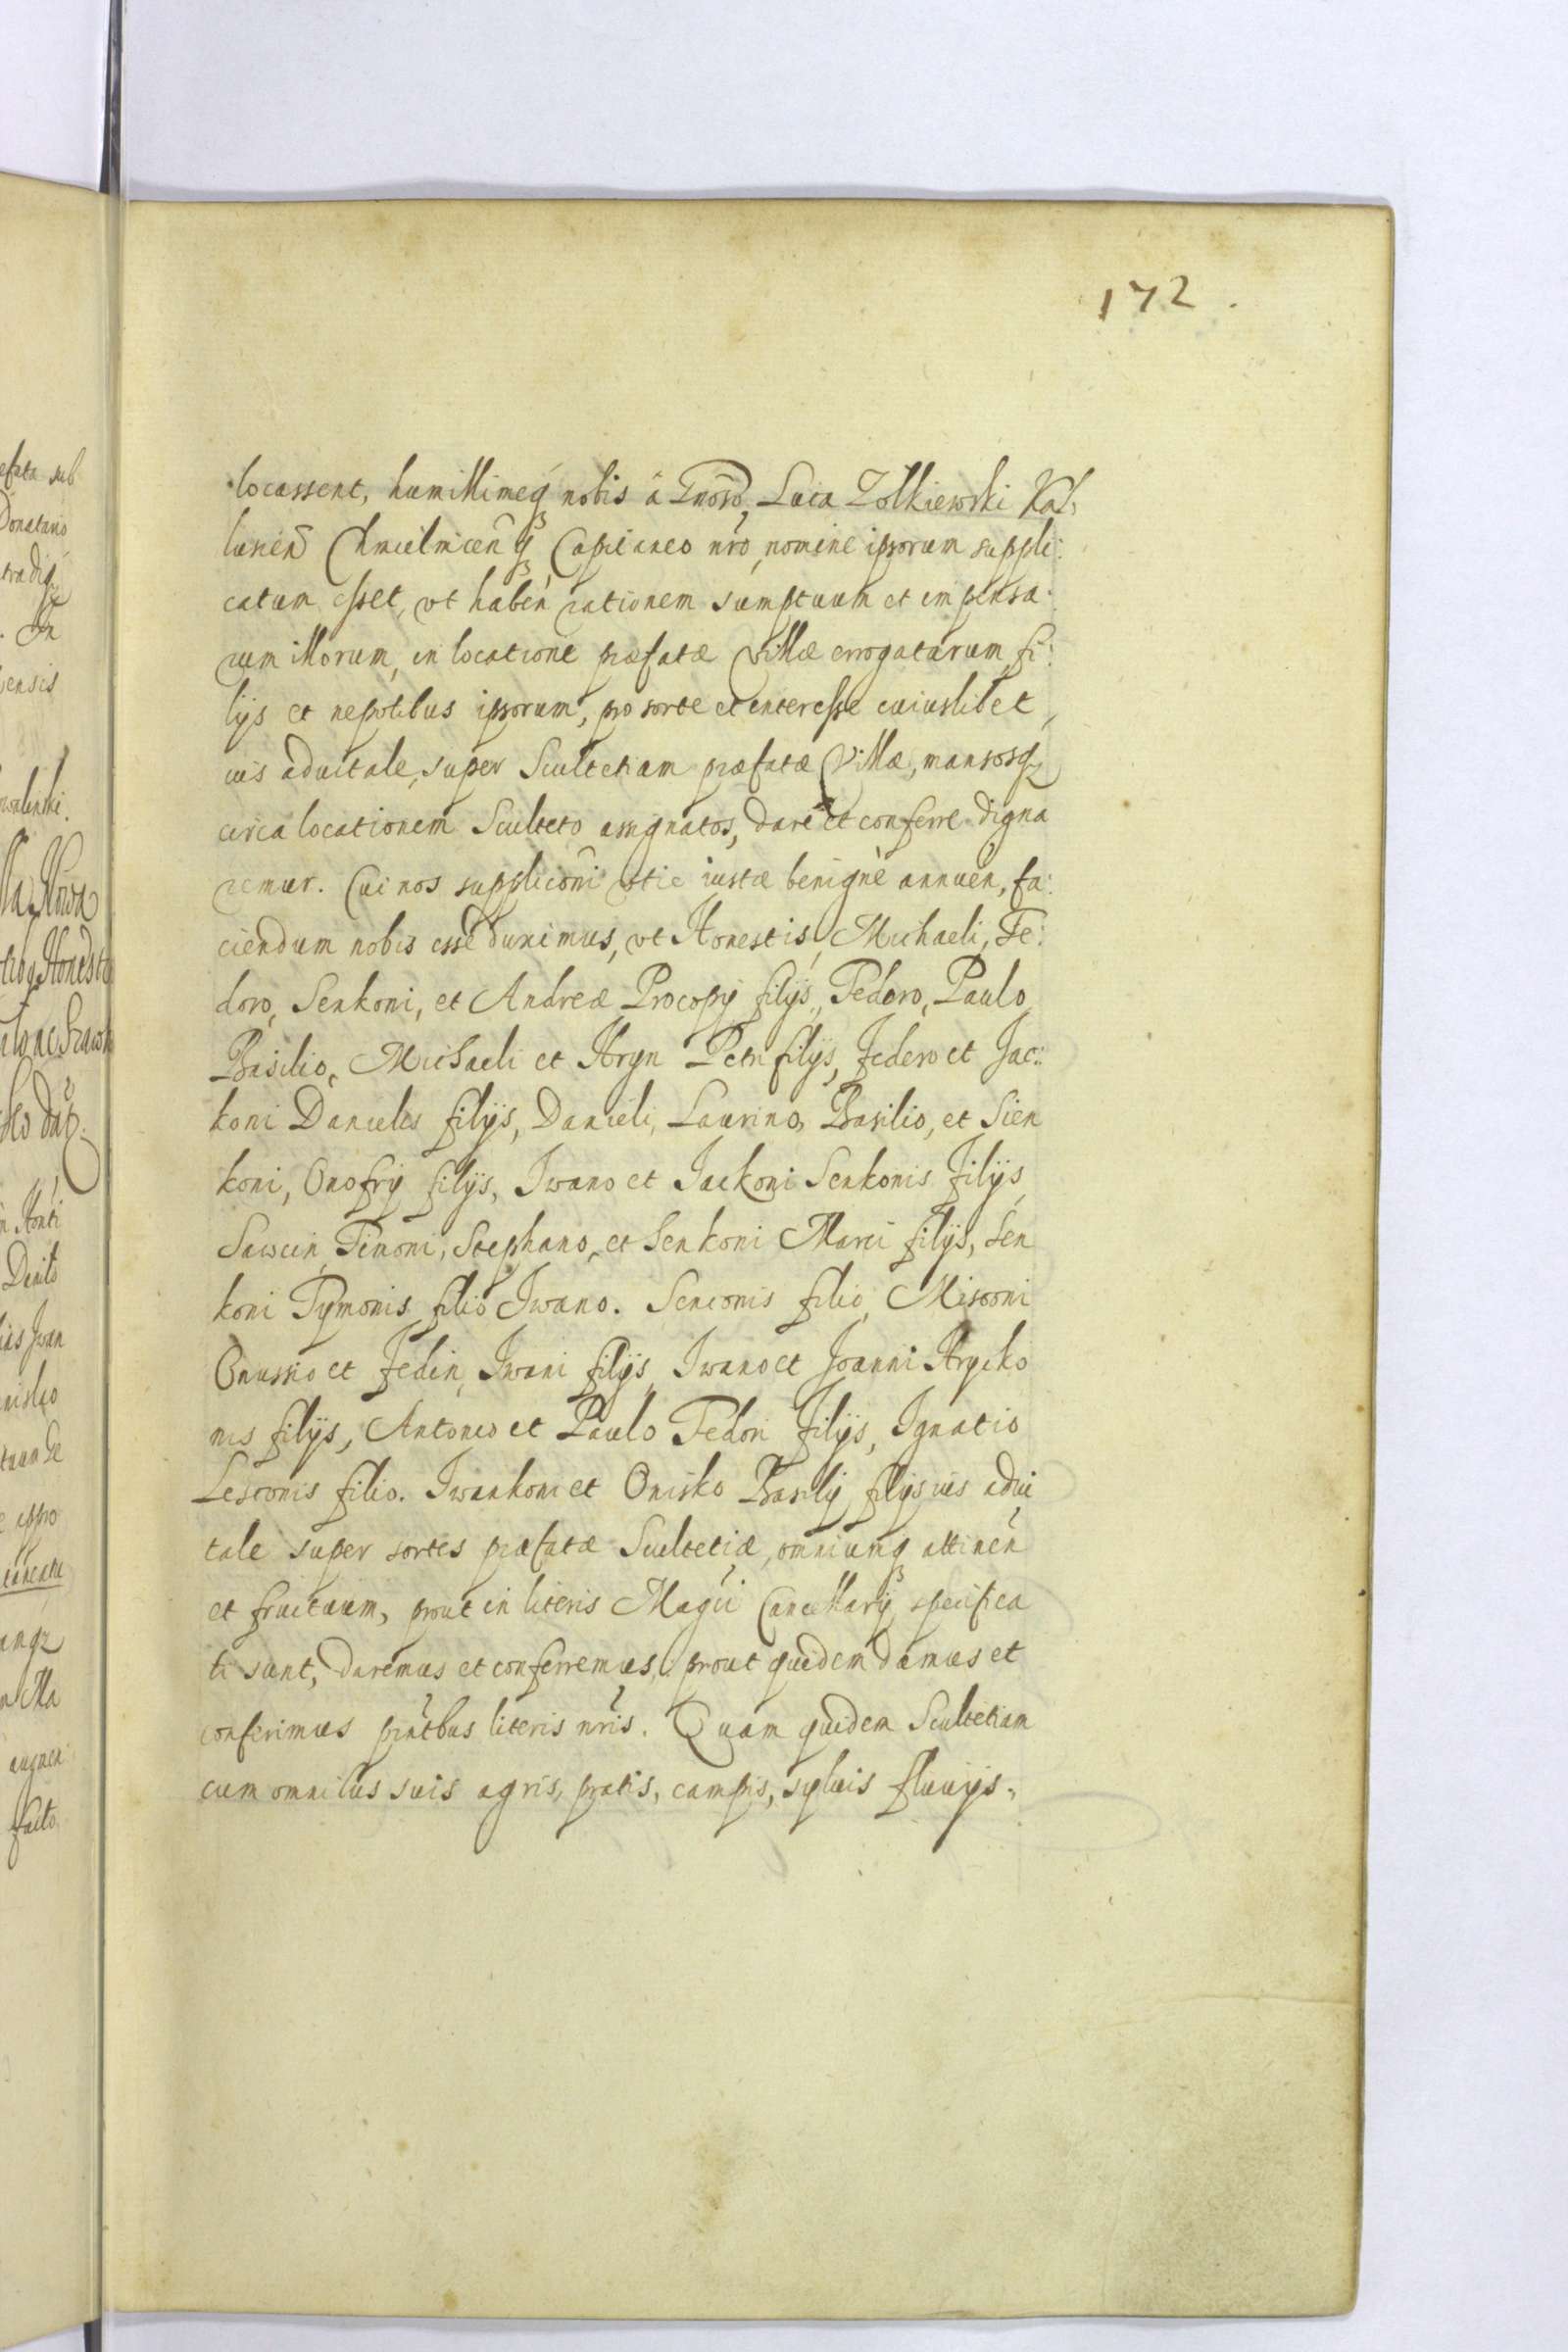 172.
locassent, humillimeq3 nobis a Gnoso, Luca Zolkiewski Kal:
lusien Chmielnicenq3 Capitaneo nro, nomine ipsorum suppli:
catum esset, vt haben rationem sumptuum et impensa:
rum illorum, in locatione præfatæ Villæ errogatarum, fi:
lijs et nepotibus ipsorum, pro sorte et interesse cuiuslibet,
ius aduitale, super Scultetiam præfatæ Villæ, mansosq3
circa locationem Sculteto assignatos, dare et conferre digna
remur. Cui nos suppliconi vtie iustæ benignè annuen, fa:
ciendum nobis esse duximus, vt Honestis, Michaeli, Fe:
doro, Senkoni, et Andreæ Procopij filijs, Fedoro, Paulo
Basilio, Michaeli et Hryn Petri filijs, Federo et Jac:
koni Danielis filijs, Danieli, Laurino, Basilio, et Sien
koni, Onofrij filijs, Iwano et Iackoni Senkonis filijs,
Sawcin, Timoni, Stephano, et Senkoni Marci filijs, Sen
koni Tymonis filio Iwano. Senconis filio, Misconi
Onussio et Fedin, Iwani filijs, Iwano et Joanni Hrycko
nis filijs, Antonio et Paulo Fedori filijs, Ignatio
Lesconis filio. Iwankoni et Onisko Basilij filijs ius adui
tale super sortes præfatæ Scultetiæ, omniumq3 attinen
et fructuum, prout in literis Magci Cancellarij specifica
ti sunt, daremus et conferremus, prout quidem damus et
conferimus pntbus literis nris. Quam quidem Scultetiam
cum omnibus suis agris, pratis, campis, syluis fluuijs,